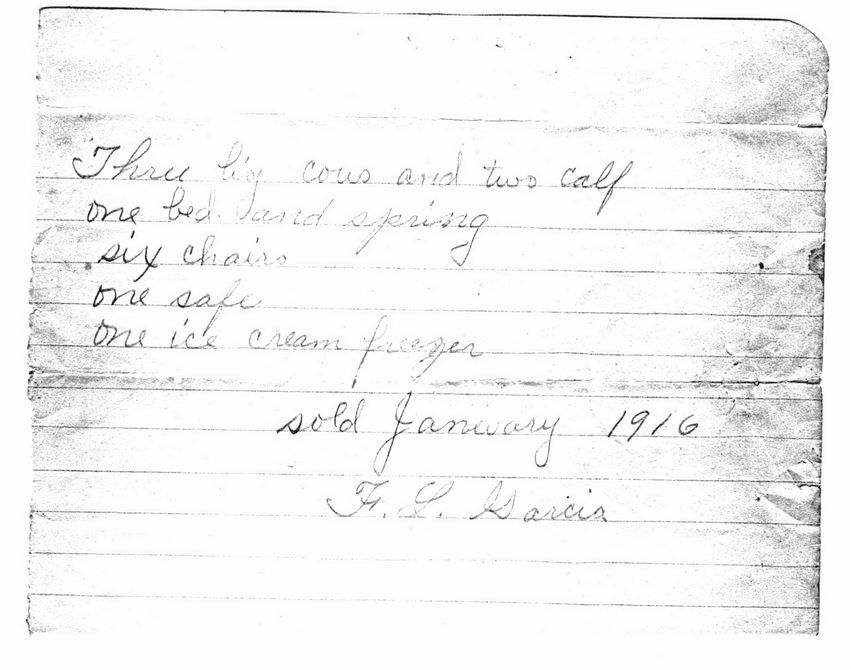 Three big cows and two calf
one bed and spring
six chairs
one safe
one ice cream freezer
sold January 1916
F. L. Garcia